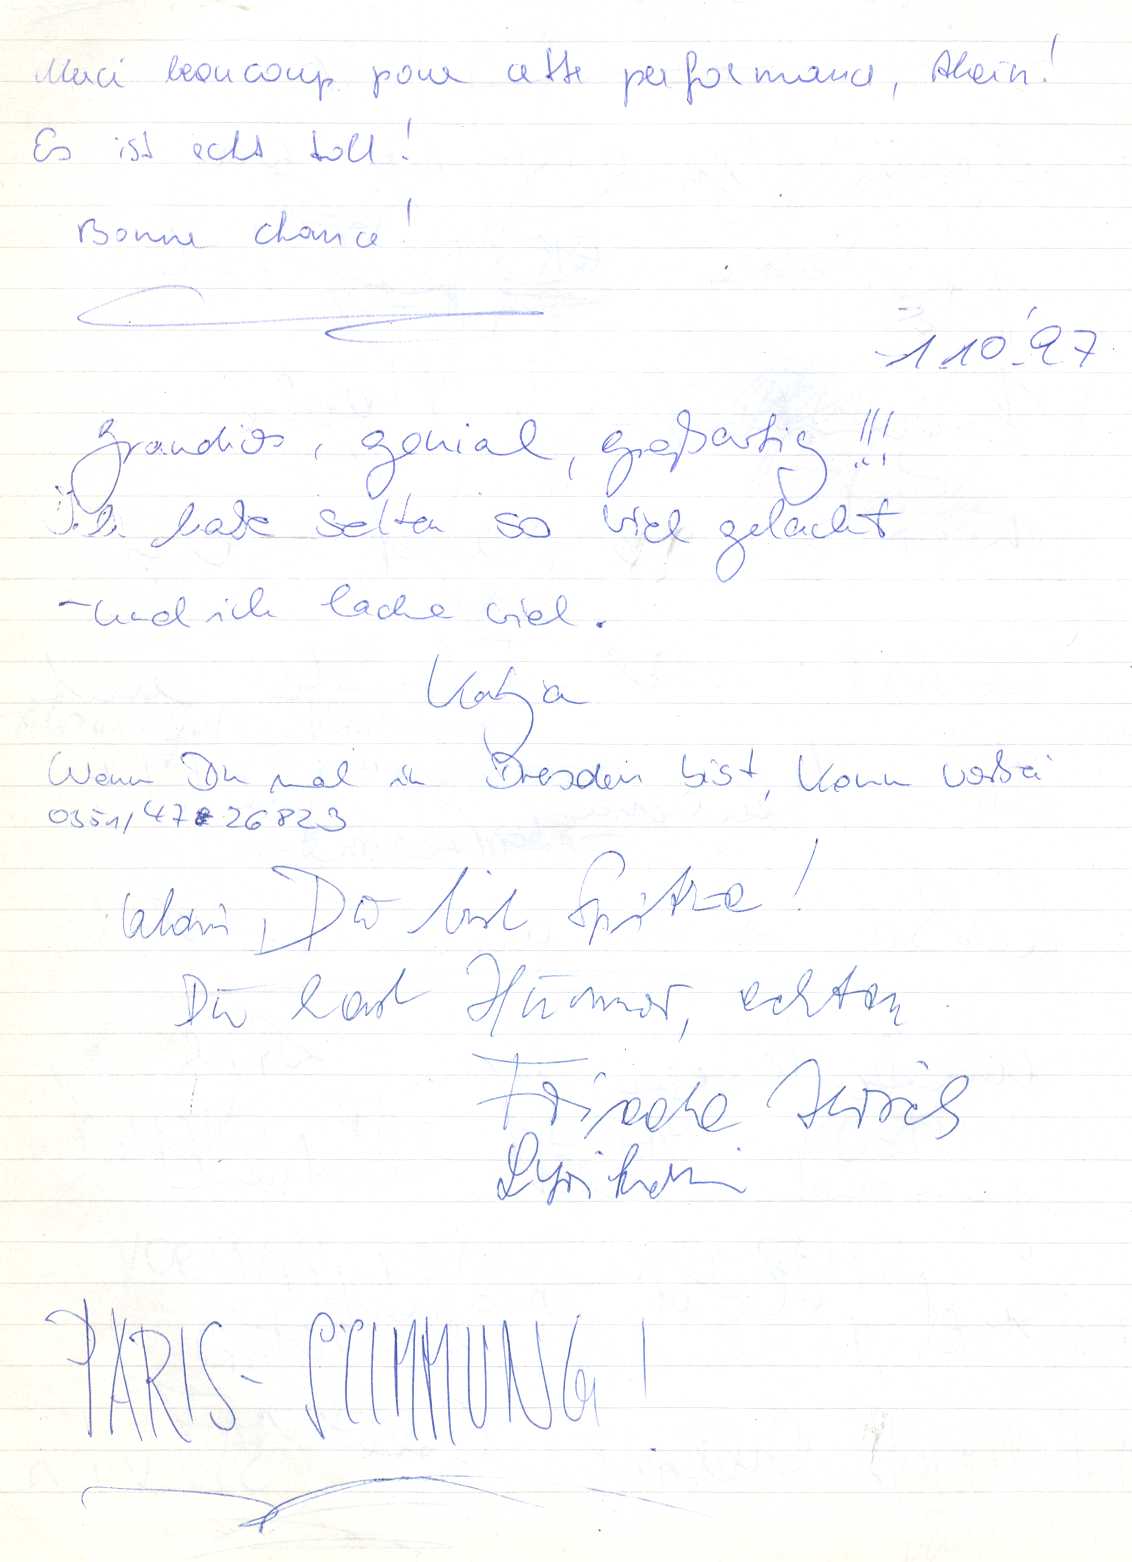 Merci beaucoup pour cette performance, Alain!
Es ist echt toll!
Bonne chance!
1.10.'97
Grandios, genial, großartig!!!
Ich habe selten so viel gelacht
- und ich lache viel.
Katja
Wenn Du mal in Dresden bist, komm vorbei
0351/47 26823
Alain, Du bist Spitze!
Du hast Humor, echten
Lyrikerin
PARIS-STIMMUNG!